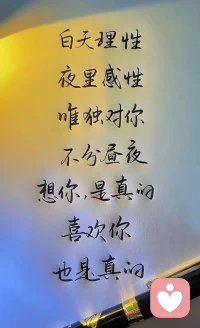 白天理性
夜里感性
唯独对你
不分昼夜
想你,是真的
喜欢你
也是真的